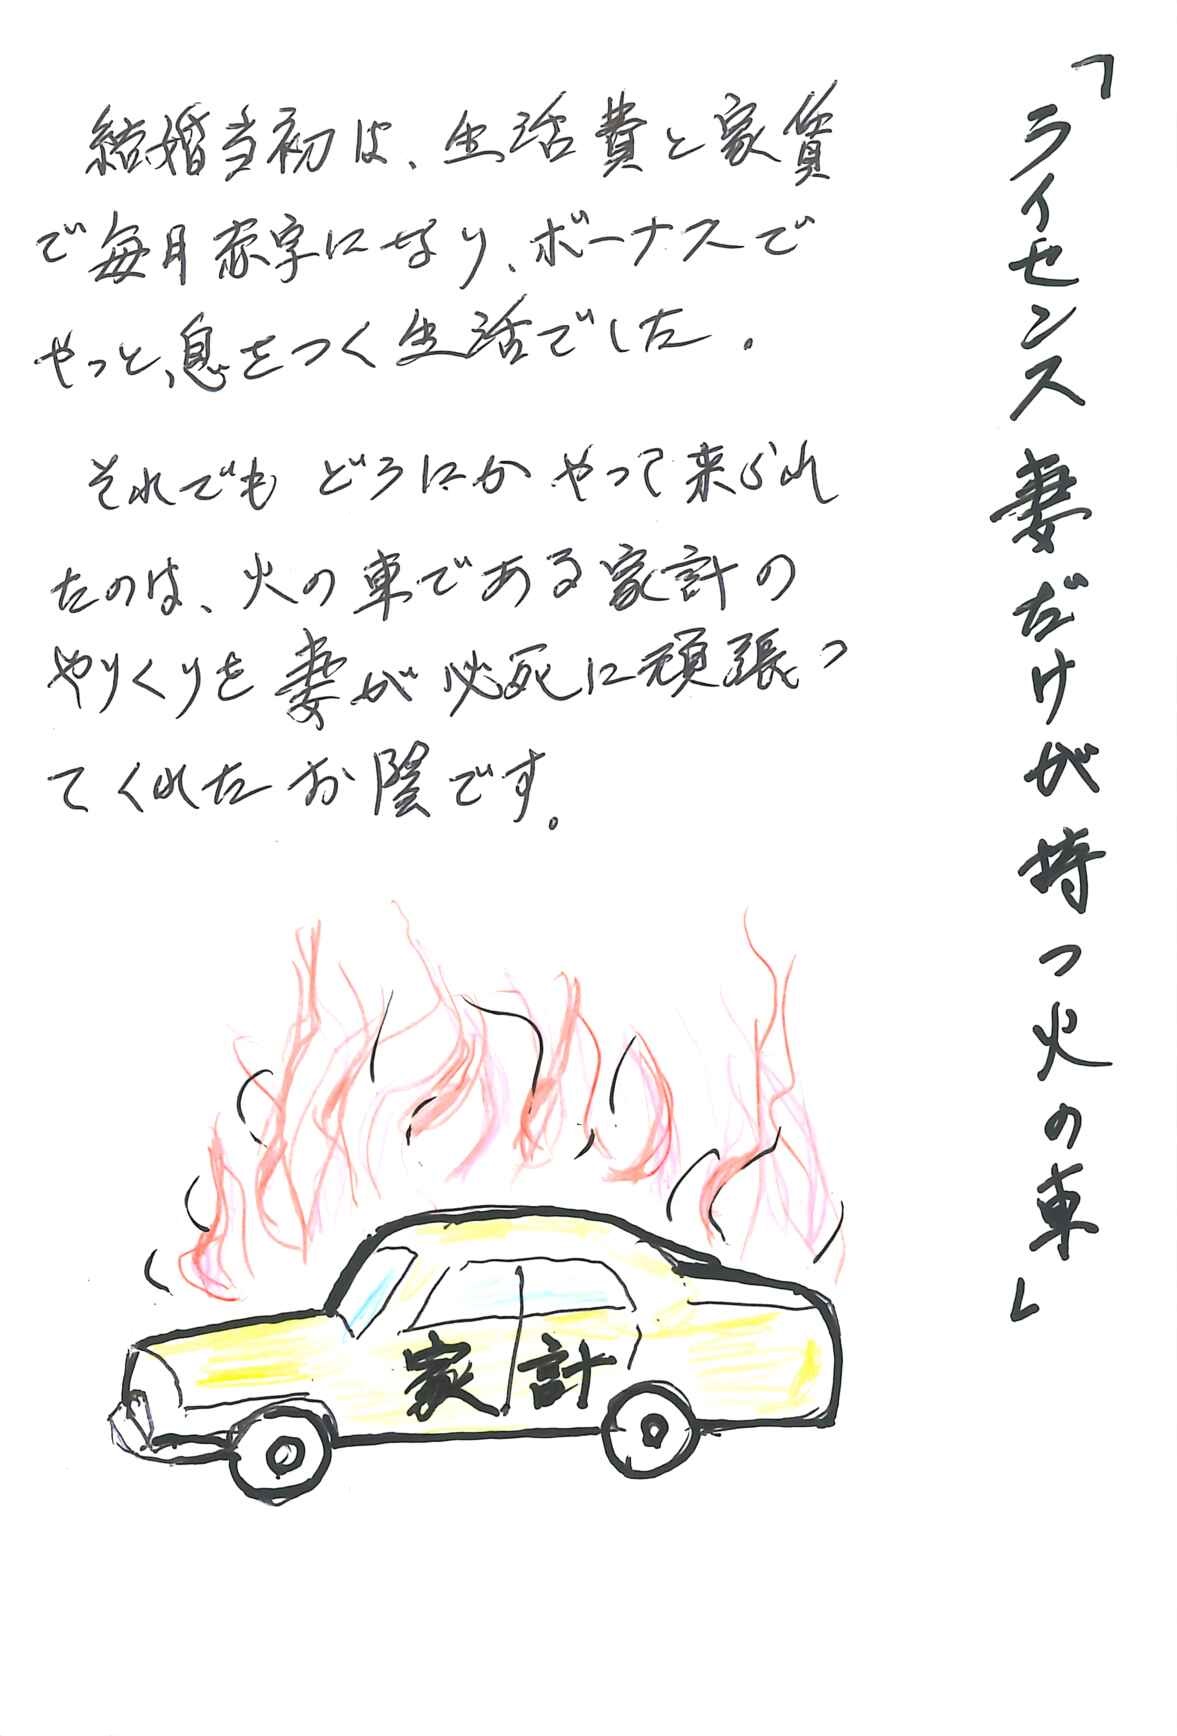 「ライセンス妻だけが持つ火の車」
結婚当初は、生活費と家賃
で毎月赤字になり、ボーナスで
やっと、息をつく生活でした。
それでもどうにかやって来られ
たのは、火の車である家計の
やりくりを妻が必死に頑張っ
てくれたお陰です。
家計